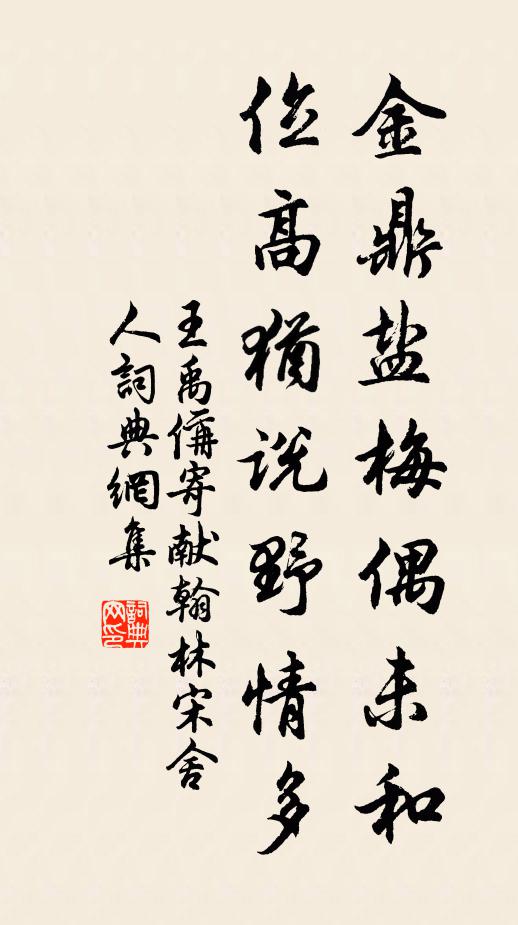 金鼎盐梅偶未和
位高犹說野情多
王禹偁寄献翰林宋舍
人詞典網集
詞典
网印